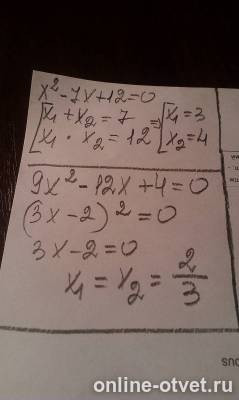 x² - 7x + 12 = 0
[x₁ + x₂ = 7 ⇒ [x₁ = 3
[x₁ · x₂ = 12 [x₂ = 4
9x² - 12x + 4 = 0
(3x - 2)² = 0
3x - 2 = 0
x₁ = x₂ = 2/3
online-otvet.ru